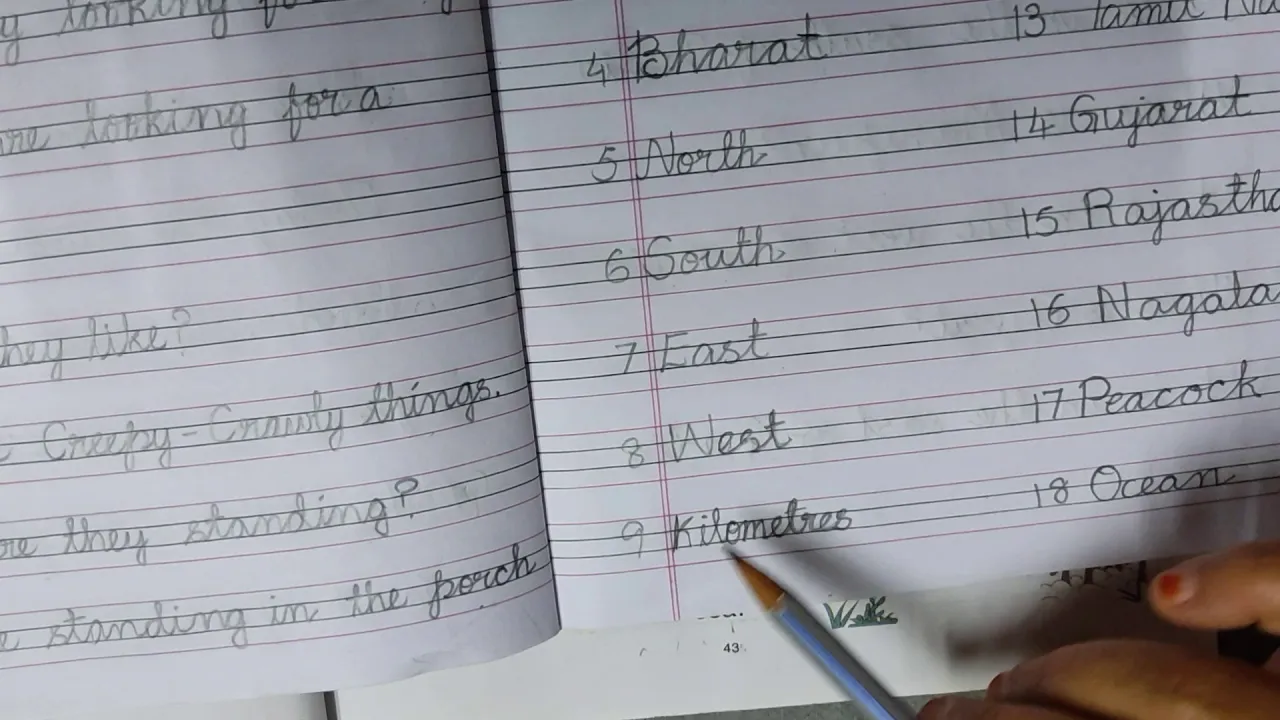 looking for
are looking for a
they like?
Creepy-Crawly things.
are they standing?
standing in the porch
4 Bharat
5 North
6 South
7 East
8 West
9 Kilometres
13 Tamil
14 Gujarat
15 Rajastha
16 Nagala
17 Peacock
18 Ocean
43